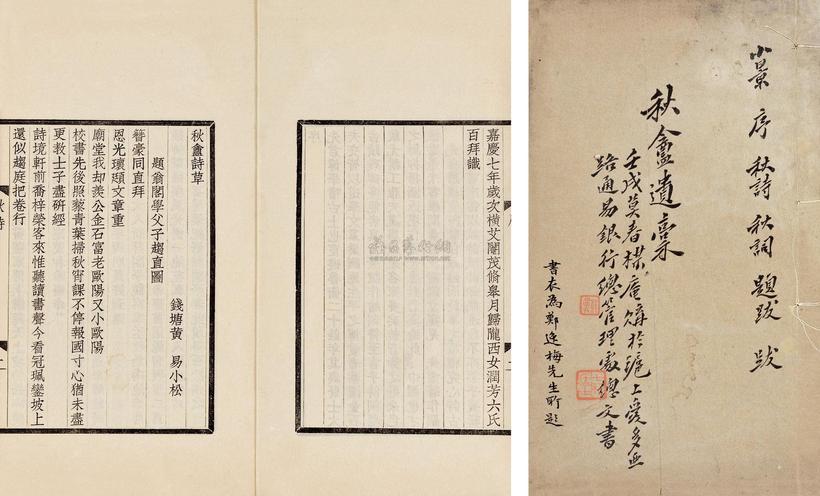 小景 序 秋詩 秋詞 題跋 跋
秋盦遺稾
壬戌莫春楳庵購於滬上愛多亞
路通易銀行總管理處總文書
書衣為鄭逸梅先生所題
嘉慶七年歲次橫艾閹茂脩皋月歸隴西女潤芳六氏
百拜識
秋盦詩草
錢塘黃 易小松
題翁閣學父子趨直圖
簪豪同直拜
恩光瓌頲文章重
廟堂我却羨公金石富老歐陽又小歐陽
校書先後照藜青葉掃秋宵課不停報國寸心猶未盡
更教士子盡硏經
詩境軒前喬梓榮客來惟聽讀書聲今看冠珮鑾坡上
還似趨庭把卷行
秋詩